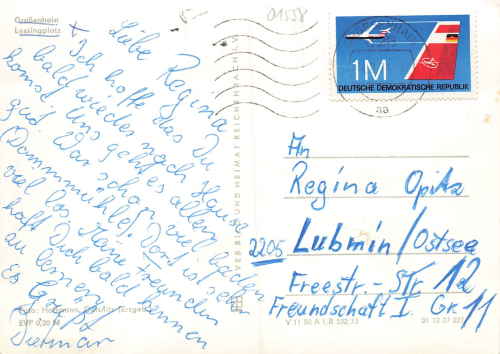 Großenhain
Lessingplatz
01558
Liebe Regina
Ich hoffe das Du
bald wieder nach Hause
komst. Uns geht es allen
gut. War schon viel baden
(Dammmühle). Dort is sehr
viel los. Meine Freunden
hofft Dich bald kennen
zu lernen.
Es Grüßt
Dietmar
Foto: Hofmann, (Erzgeb.)
EVP 0,20 M
VEB BILD UND HEIMAT REICHENBACH
1M
DEUTSCHE DEMOKRATISCHE REPUBLIK
An
Regina Opitz
2205 Lubmin/Ostsee
Freestr.-Str 12
Freundschaft I. Gr. 11
V 11 50 A 1/B 532/73
01 12 07 027